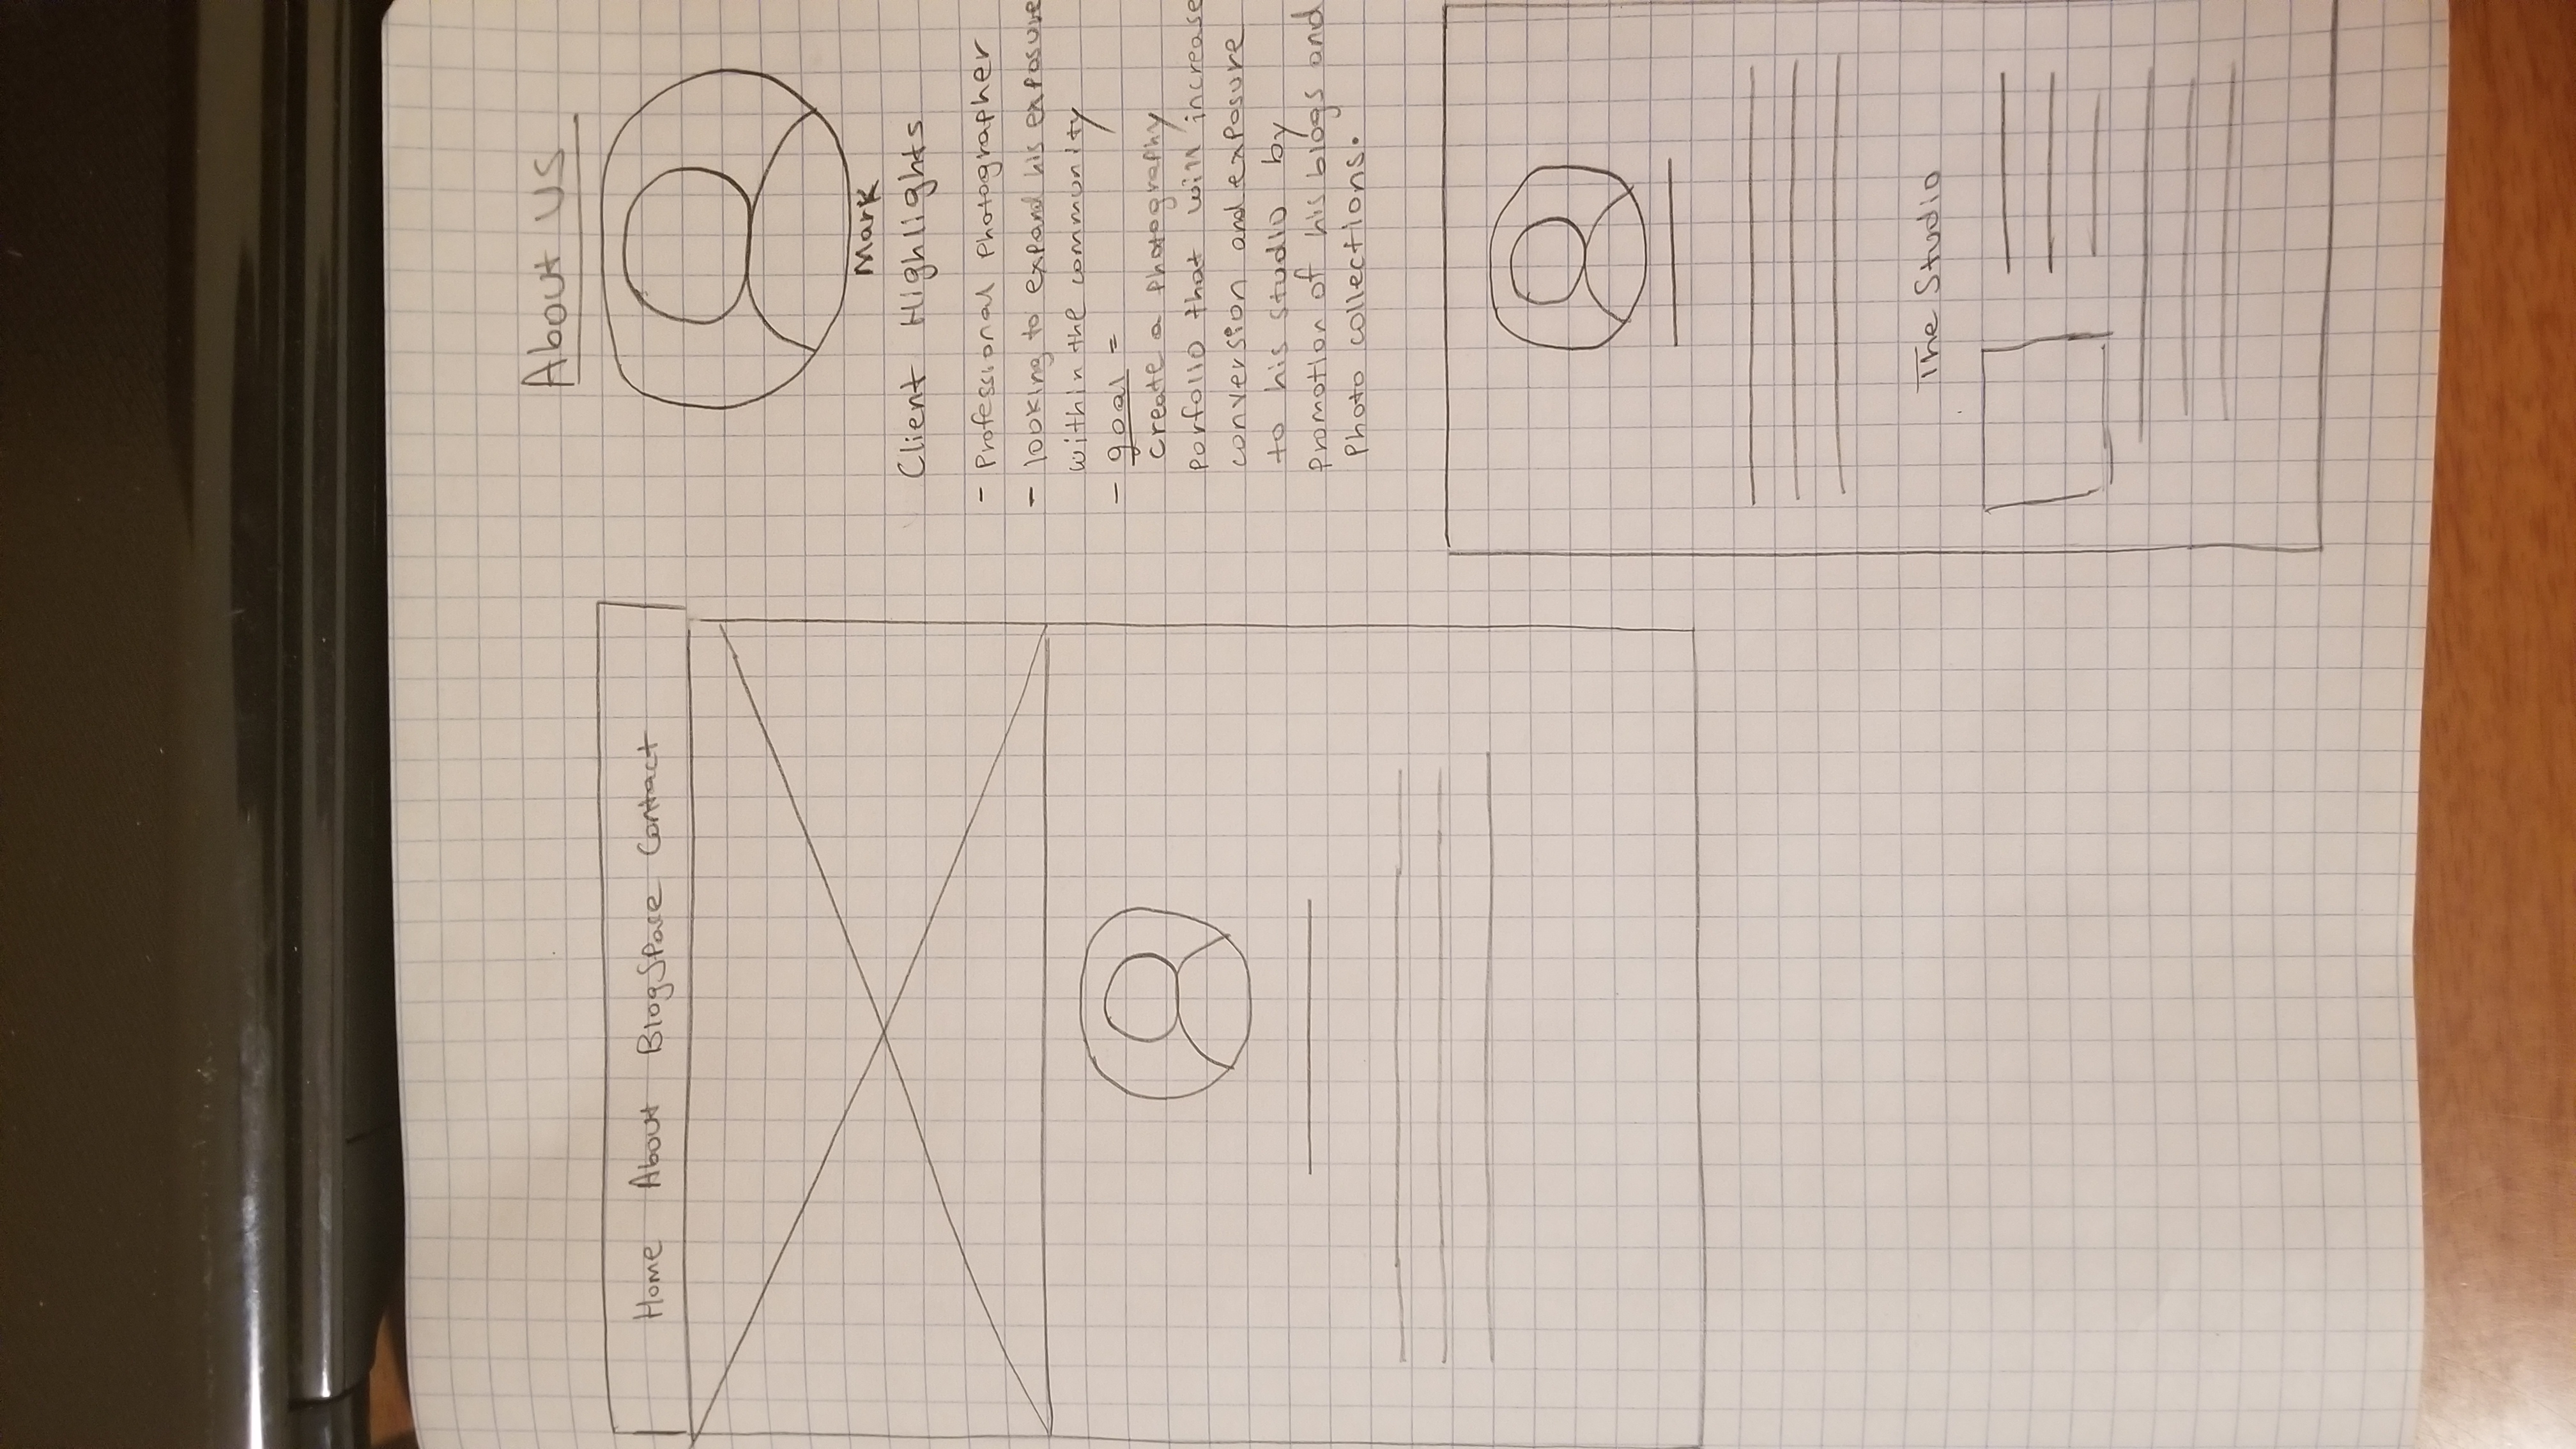 Home About BlogSpace Contact
About US
Mark
Client Highlights
- Professional Photographer
- looking to expand his exposure
within the community
- goal =
create a photography
porfolio that will increase
conversion and exposure
to his studio by
promotion of his blogs and
Photo collections.
The Studio